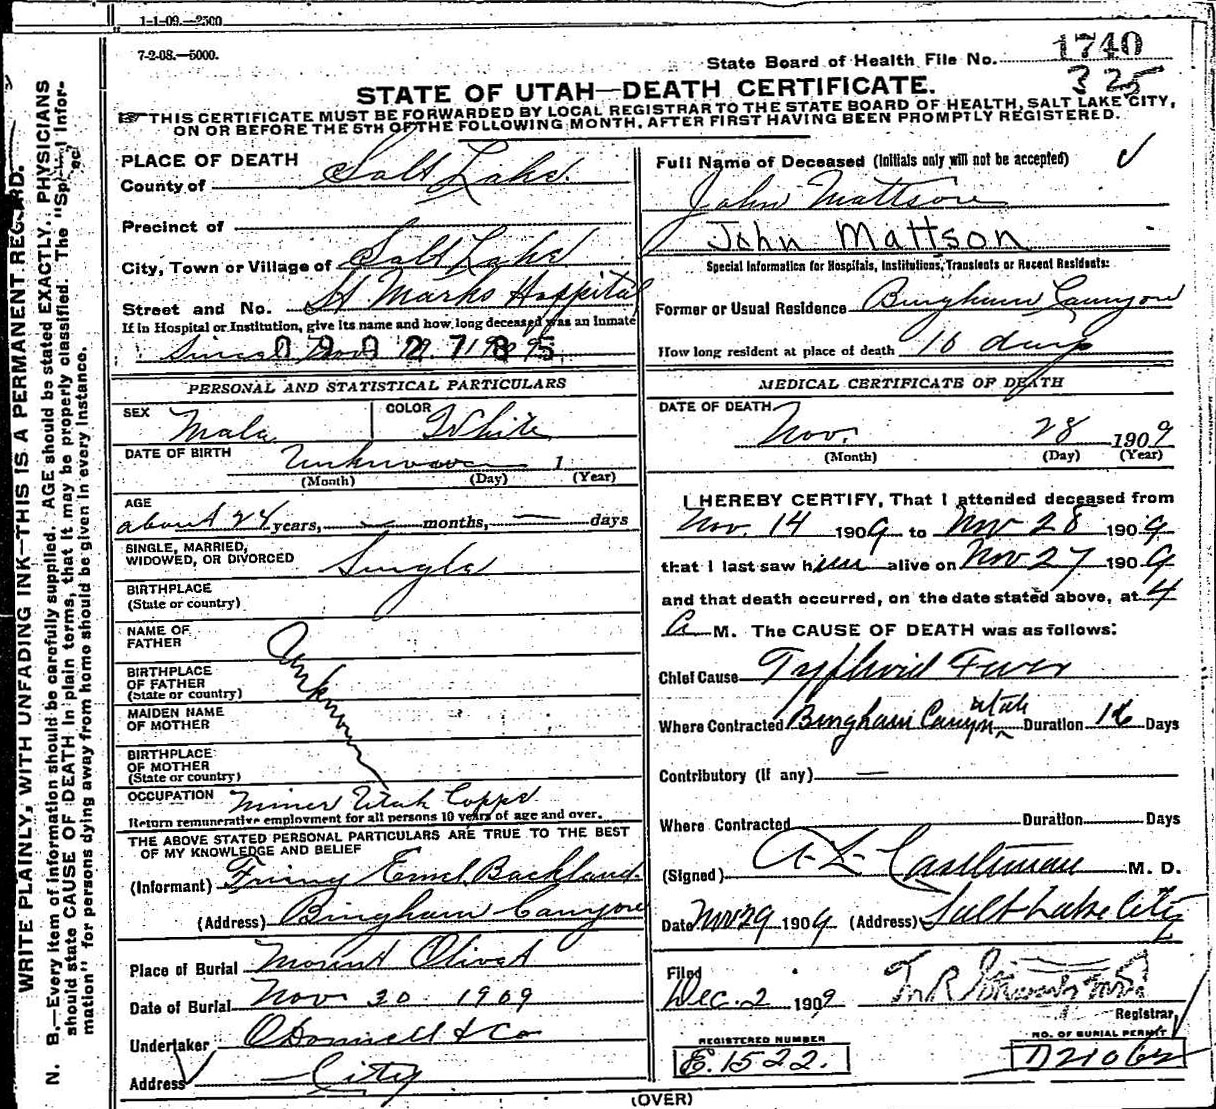 1-1-09.—2500
7-2-08.—5000.
State Board of Health File No. 1740
325
STATE OF UTAH—DEATH CERTIFICATE.
THIS CERTIFICATE MUST BE FORWARDED BY LOCAL REGISTRAR TO THE STATE BOARD OF HEALTH, SALT LAKE CITY,
ON OR BEFORE THE 5TH OF THE FOLLOWING MONTH, AFTER FIRST HAVING BEEN PROMPTLY REGISTERED.
WRITE PLAINLY, WITH UNFADING INK—THIS IS A PERMANENT RECORD.
N. B.—Every item of information should be carefully supplied. AGE should be stated EXACTLY. PHYSICIANS
should state CAUSE OF DEATH in plain terms, that it may be properly classified. The "Special Infor-
mation" for persons dying away from home should be given in every instance.
PLACE OF DEATH
County of Salt Lake.
Precinct of
City, Town or Village of Salt Lake
Street and No. St Marks Hospital
If in Hospital or Institution, give its name and how long deceased was an inmate
Since Nov 1909
0902785
PERSONAL AND STATISTICAL PARTICULARS
SEX Male
COLOR White
DATE OF BIRTH Unknown 1
(Month) (Day) (Year)
AGE
about 24 years, — months, — days
SINGLE, MARRIED,
WIDOWED, OR DIVORCED Single
BIRTHPLACE
(State or country)
NAME OF
FATHER
Unknown
BIRTHPLACE
OF FATHER
(State or country)
MAIDEN NAME
OF MOTHER
BIRTHPLACE
OF MOTHER
(State or country)
OCCUPATION Miner Utah Copper
Return remunerative employment for all persons 10 years of age and over.
THE ABOVE STATED PERSONAL PARTICULARS ARE TRUE TO THE BEST
OF MY KNOWLEDGE AND BELIEF
(Informant) Emel Backlund.
(Address) Bingham Canyon
Place of Burial Mount Olivet
Date of Burial Nov 30 1909
Undertaker O'Donnell & Co
Address City
Full Name of Deceased (Initials only will not be accepted)
John Mattson
John Mattson
Special Information for Hospitals, Institutions, Transients or Recent Residents:
Former or Usual Residence Bingham Canyon
How long resident at place of death 16 days
MEDICAL CERTIFICATE OF DEATH
DATE OF DEATH
Nov. 28 1909
(Month) (Day) (Year)
I HEREBY CERTIFY, That I attended deceased from
Nov. 14 1909 to Nov 28 1909
that I last saw him alive on Nov 27 1909
and that death occurred, on the date stated above, at 4
A M. The CAUSE OF DEATH was as follows:
Chief Cause Typhoid Fever
Where Contracted Bingham Canyon Utah Duration 16 Days
Contributory (if any) —
Where Contracted Duration Days
(Signed) A. L. Castleman M. D.
Date Nov 29 1909 (Address) Salt Lake City
Filed
Dec. 2 1909
Registrar
REGISTERED NUMBER
E.1522.
NO. OF BURIAL PERMIT
(OVER)